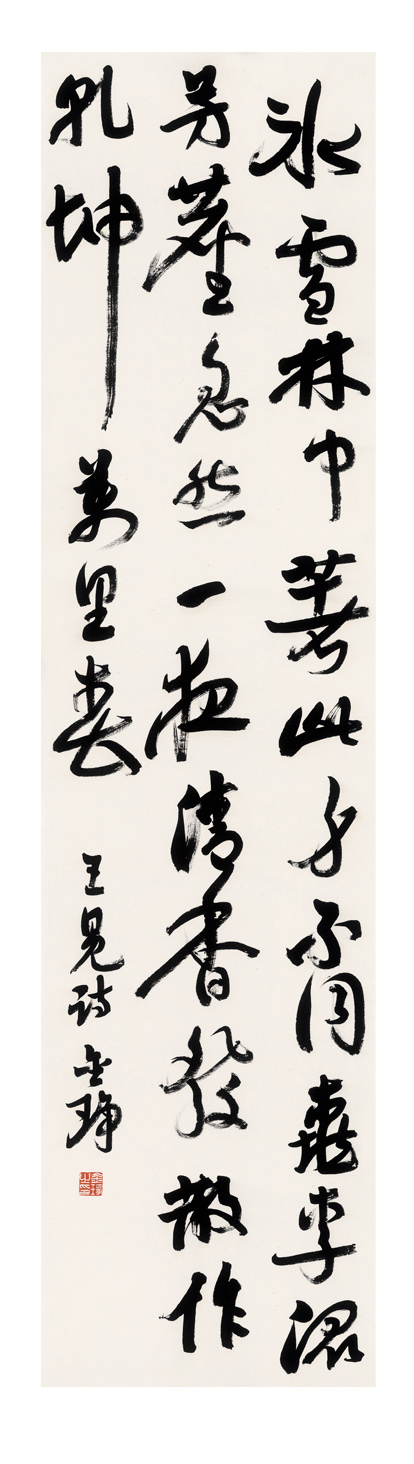 冰雪林中著此身不同桃李混
芳塵忽然一夜清香發散作
乾坤萬里春
王冕詩 金琤